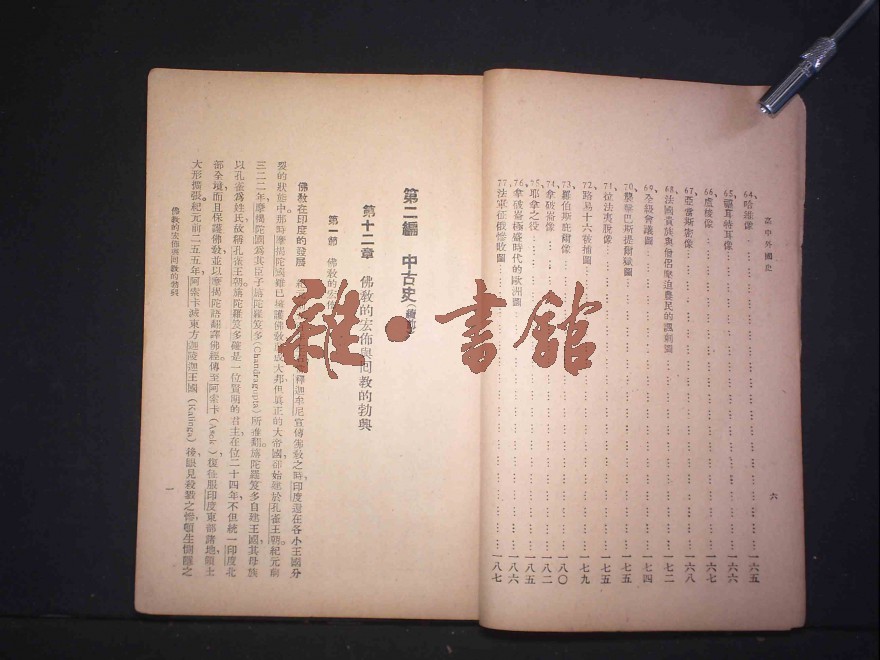 高中外國史
64. 哈維像 一六五
65. 福耳特耳像 一六六
66. 盧梭像 一六七
67. 亞當斯密像 一六八
68. 法國貴族與僧侶壓迫農民的諷刺圖 一七二
69. 全級會議圖 一七四
70. 襲擊巴斯提爾獄圖 一七五
71. 拉法夷脫像 一七五
72. 路易十六被捕圖 一七九
73. 羅伯斯庇爾像 一八〇
74. 拿破崙像 一八二
75. 耶拿之役 一八五
76. 拿破崙極盛時代的歐洲圖 一八六
77. 法軍征俄慘敗圖 一八七
六
第二編 中古史
第十二章 佛教的宏佈與回教的勃興
第一節 佛教的宏佈
佛教在印度的發展 釋迦牟尼宣傳佛教之時,印度還在各小王國分
裂的狀態中,那時摩揭陀國雖已擁護佛教 成大邦,但真正的大帝國,却始建於孔雀王朝。紀元前
三二二年,摩揭陀國為其臣子旃陀羅笈多(Chandragupta)所推翻,旃陀羅笈多自建王國,其母族
以孔雀為姓氏,故稱孔雀王朝。旃陀羅笈多確是一位賢明的君主,在位二十四年,不但統一印度北
部全境,而且保護佛教,並以摩揭陀語翻譯佛經。傳至阿索卡(Asoka),復征服印度東部諸地,領土
大形擴張。紀元前二五五年,阿索卡滅東方迦陵迦王國(Kalinga)後,眼見殺戮之慘,頓生惻隱之
佛教的宏佈與回教的勃興
一
雜·書館